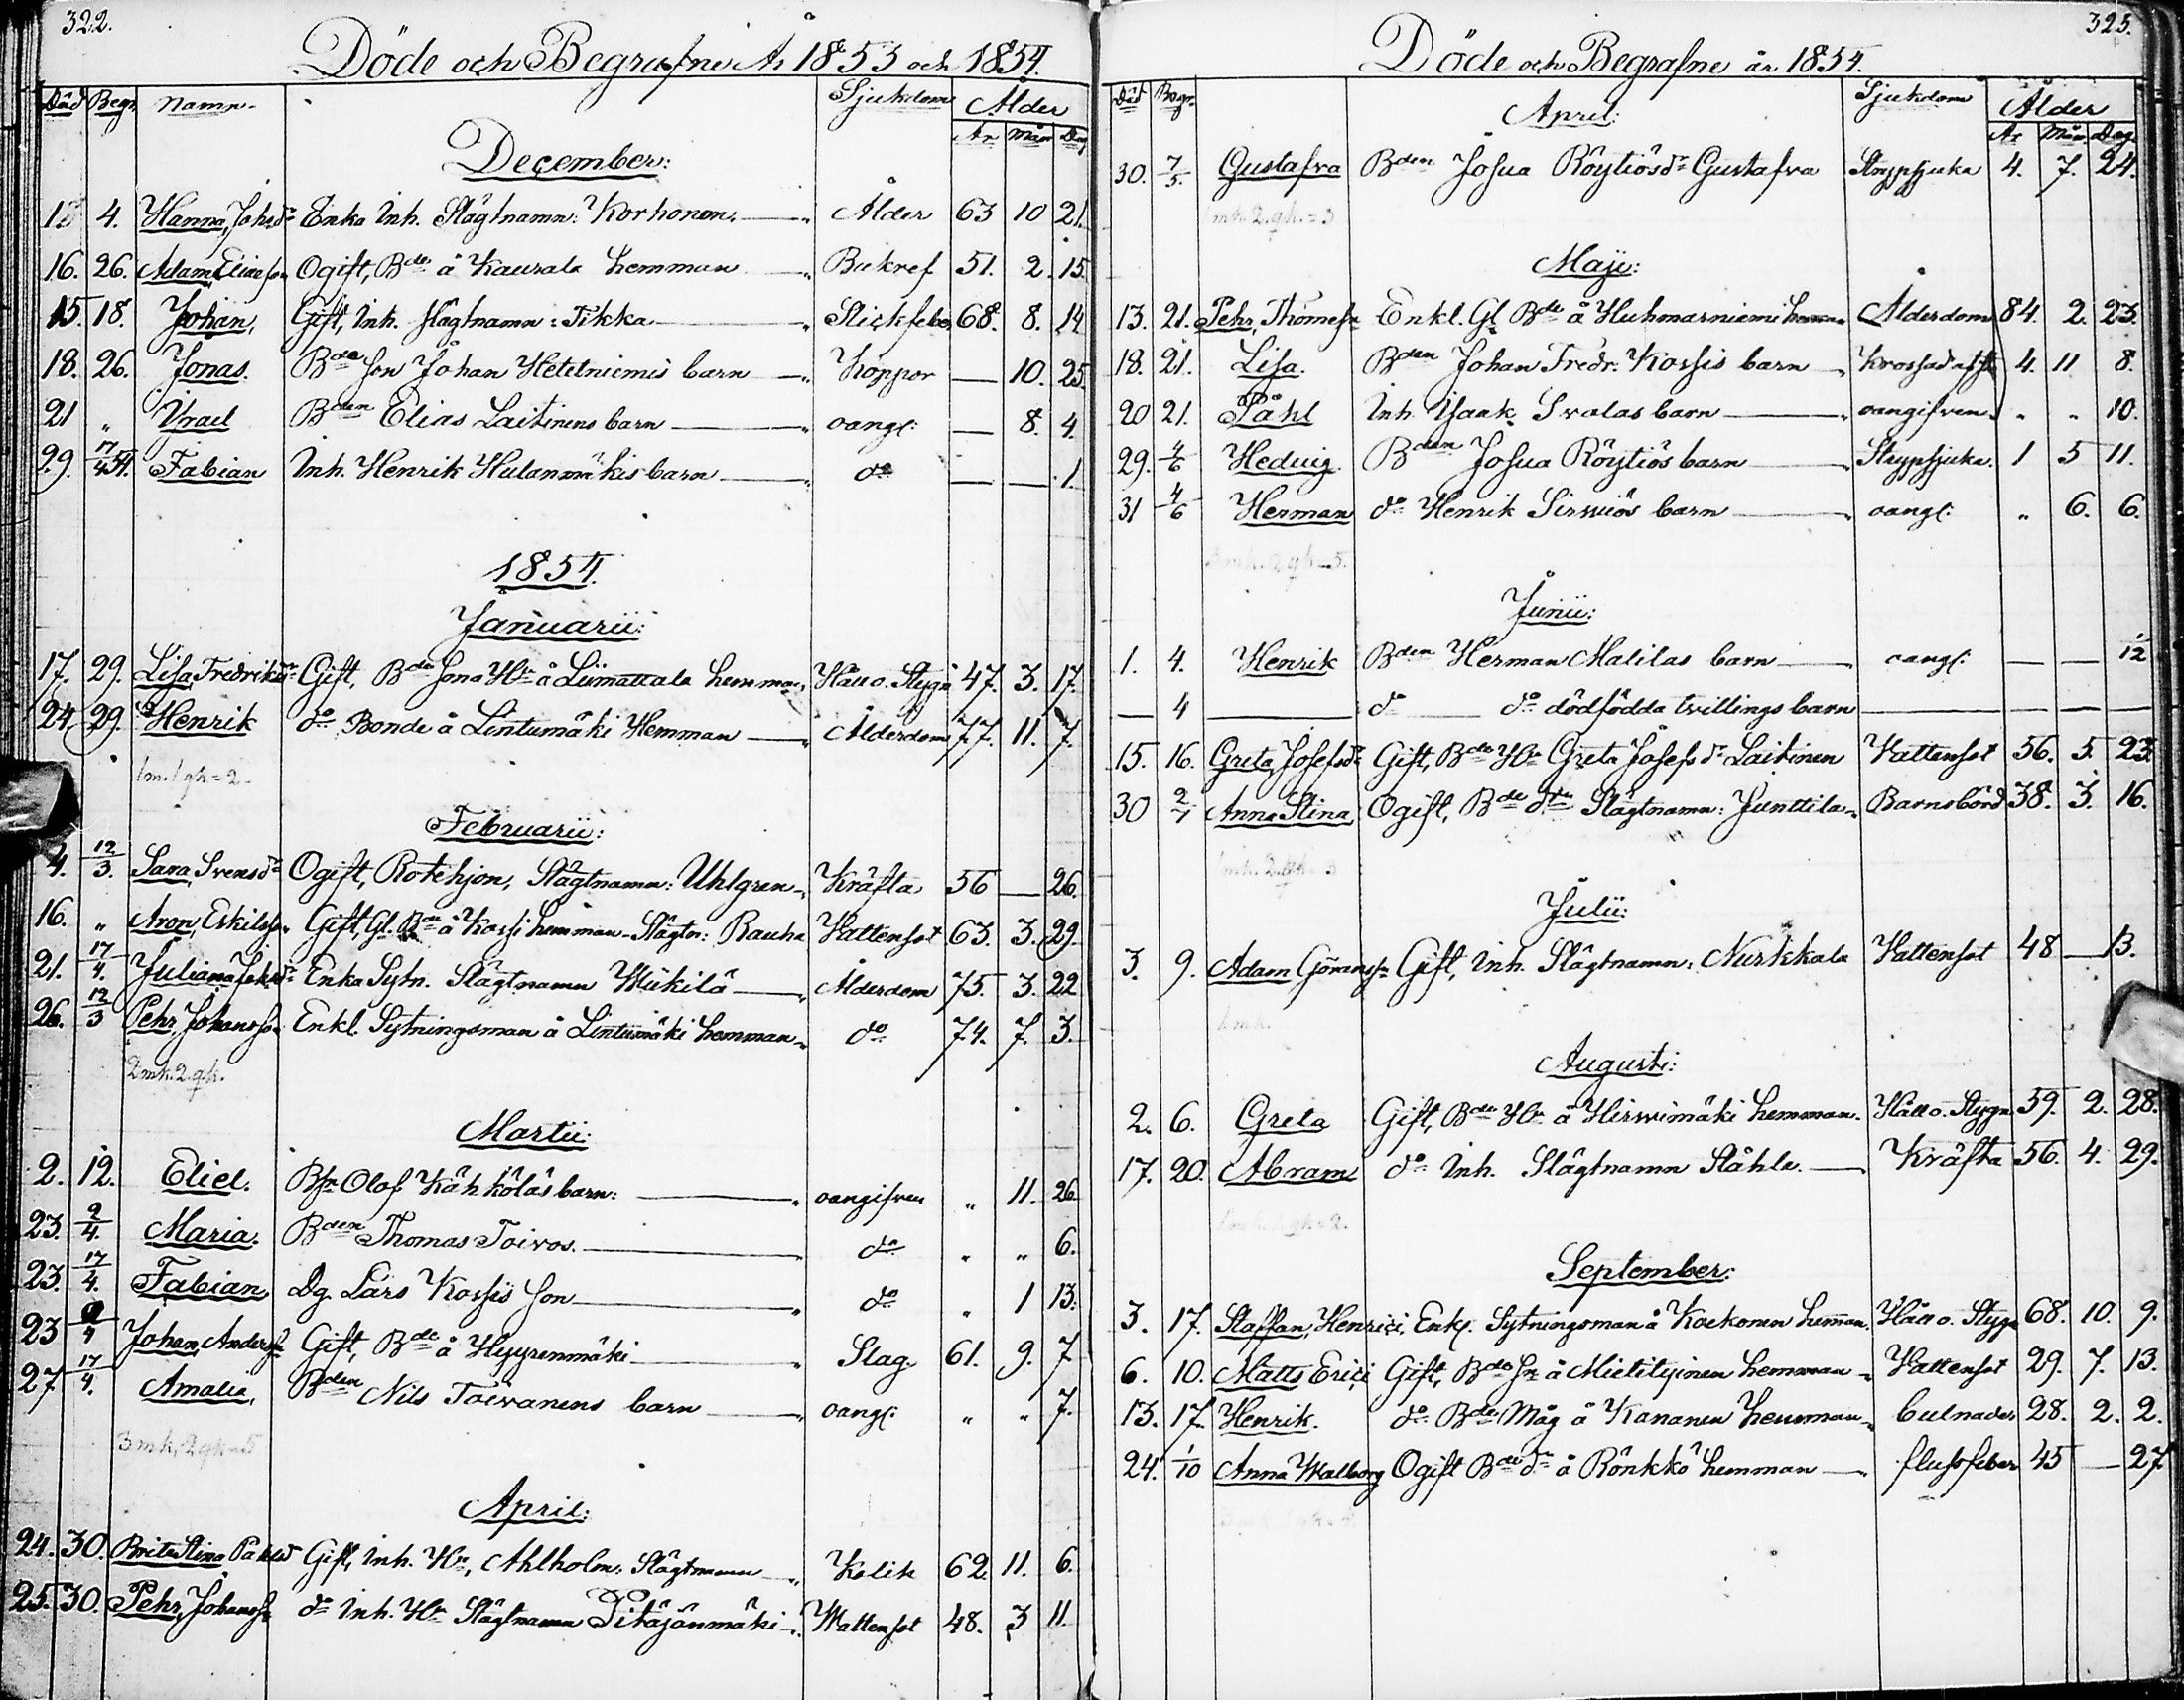 322.
Döde och Begrafne År 1853 och 1854.
Död Begr. Namn. Sjukdom Ålder
År Mån Dag
December:
4. Hanna, Johsdr Enka Inh. Slägtnamn: Korhonen. Ålder 63 10 21.
16. 26. Adam, Eliasson Ogift, Bde å Kaurala hemman Bukref 51. 2. 15.
15. 18. Johan, Gift, Inh. slägtnamn: Tikka Stickfeber 68. 8. 14
18. 26. Jonas. Bde Son Johan Hetelniemis barn Koppor — 10. 25.
21 „ Israel Bden Elias Laitinens barn oangf: — 8. 4.
29. 17/4 54. Fabian Inh. Henrik Hulanmäkis barn do — — 1.
1854.
Januarii:
17. 29. Lisa, Fredriksdr Gift, Bde Sona Hu å Liimattala hemman, Håll o. Stygn 47. 3. 17.
24. 29. Henrik do Bonde å Lintumäki Hemman Ålderdom 77. 11. 7.
1m. 1 qk = 2.
Februarii:
4. 12/3. Sara, Svensdr Ogift, Rotehjon, Slägtnamn: Uhlgren Kräfta 56 — 26.
16. „ Aron, Eskilsson Gift, Gl. Bde å Kossi hemman. Slägtn: Rauha Wattensot 63. 3. 29.
21. 17/4. Juliana Johsdr Enka Sytn. Slägtnamn Mikilä Ålderdom 75. 3. 22
26. 12/3 Pehr, Johansson Enkl. Sytningsman å Lintumäki hemman do 74. 7. 3.
2 mk. 2 qk.
Martii:
2. 12. Eliel. Bsn Olof Kähköläs barn: oangifven „ 11. 26.
23. 2/4. Maria. Bden Thomas Toivos. do „ „ 6.
23. 17/4. Fabian, Dg. Lars Kossis son do „ 1 13.
23 /4 Johan, Andersson Gift, Bde å Hyyrenmäki Slag 61. 9. 7
27 17/4. Amalia, Bden Nils Toivanens barn oangf: „ „ 7.
3 mk, 2 qk = 5
April:
24. 30. Brita Stina Påhlsd Gift, Inh. Hu, Ahlholm: Slägtnamn Kolik 62. 11. 6.
25. 30. Pehr, Johansson do Inh. Slägtnamn Pitäjänmäki Wattensot 48. 3 11.
323.
Döde och Begrafne år 1854.
Död Begr. Sjukdom Ålder
År Mån. Dag
April:
30. 7/5. Gustafva Bden Josua Röytiös dr Gustafva Strypsjuka 4. 7. 24.
1 mk. 2 qk. = 3
Maji:
13. 21. Pehr, Thomesson Enkl. Gl Bde å Huhmarniemi hemman Ålderdom 84. 2. 23.
18. 21. Lisa. Bden Johan Fredr. Kossis barn Krossad 4. 11 8.
20 21. Påhl Inh. Isaak Svalas barn oangifven. „ „ 10.
29. 4/6 Hedvig. Bden Josua Röytiös barn Strypsjuka. 1 5 11.
31 4/6 Herman do Henrik Sirwiös barn oangf: „ 6. 6.
3 mk. 2 qk = 5.
Junii:
1. 4. Henrik Bden Herman Malilas barn oangf: — — 1/12
— 4 — do do dödfödda tvillings barn — — — —
15. 16. Greta, Josefsdr Gift, Bde Hu Greta Josefs dr Laitinen Wattensot 56. 5. 23
30 2/7 Anna Stina, Ogift, Bde dtr Slägtnamn: Junttila Barnsbörd 38. 3. 16.
1 mk. 2 qk = 3
Julii:
3. 9. Adam Göransson Gift, Inh. Slägtnamn: Nurkkala Wattensot 48 — 13.
1 mk.
Augusti:
2. 6. Greta Gift, Bde Hu å Hirwimäki hemman. Håll o. Stygn 59. 2. 28.
17. 20. Abram do Inh. Slägtnamn Ståhle. Kräfta 56. 4. 29.
1 mk. 1 qk = 2.
September:
3. 17. Staffan, Henrici, Enkl. Sytningsman å Korkonen hemman, Håll o. Stygn 68. 10. 9.
6. 10. Matts Erici Gift, Bde sn å Mietityinen hemman Wattensot 29. 7. 13.
13. 17. Henrik. do Bde Måg å Kananen hemman bulnader 28. 2. 2.
24. 1/10 Anna Walborg Ogift Bde dr å Rönkkö hemman flussfeber 45 — 27